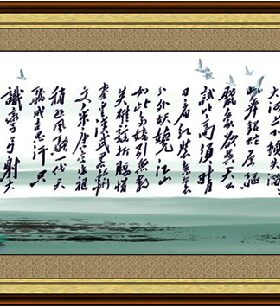 大河上下顿失滔
山舞银蛇原驰
蜡象欲与天公
试比高须晴
日看红装素裹
分外妖娆江山
如此多娇引无数
英雄竞折腰惜
秦皇汉武略输
文采唐宗宋祖
稍逊风骚一代天
骄成吉思汗只
识弯弓射大